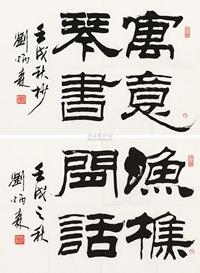 寓意
琴書
壬戌秋杪
劉炳森
漁樵
閒話
壬戌之秋
劉炳森